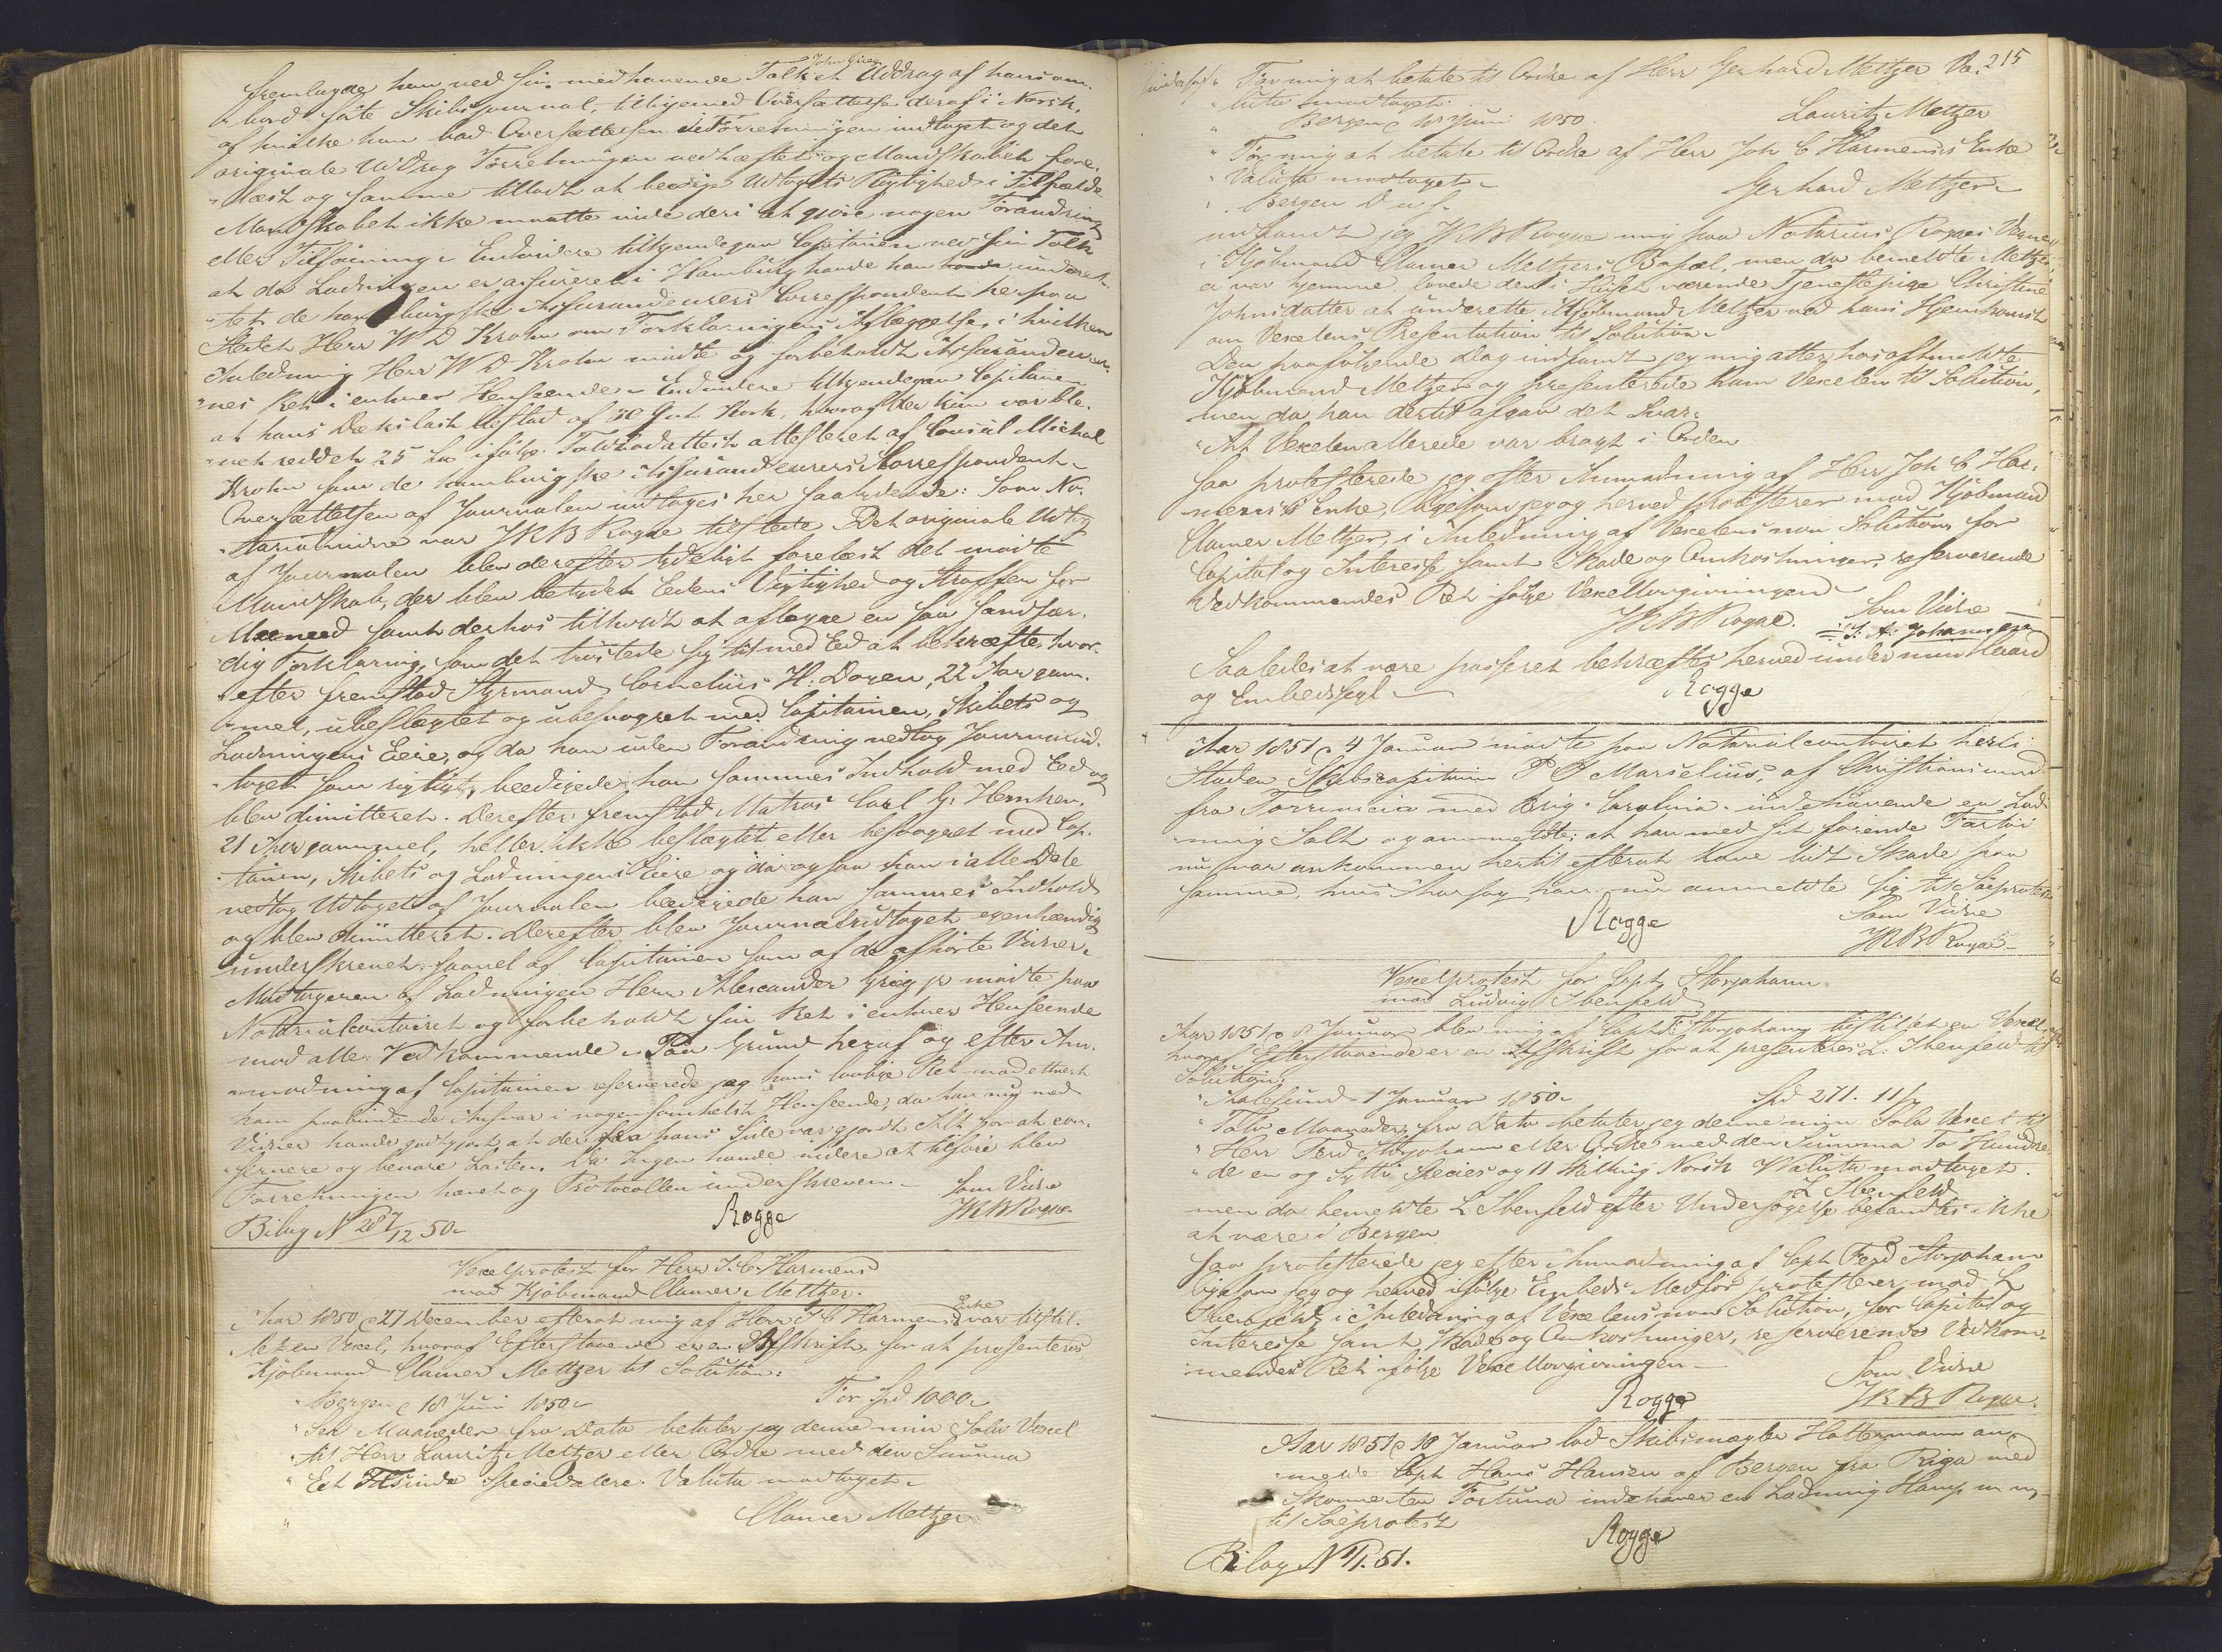 John Grieg
fremlagde han ved sin medhavende Tolk et Uddrag af hans om-
bord førte Skibsjournal, tilligemed Oversættelse deraf i Norsk,
af hvilke han bad Oversættelsen i Forretningen indtaget og det
originale Uddrag Forretningen vedhæftet og Mandskabet fore-
læst og samme tilladt at beedige Udtogets Rigtighed i Tilfælde
Mandskabet ikke maatte vide deri at gjøre nogen Forandring
eller Tilføining. Endvidere tilkjendegav Capitainen ved sin Tolk
at da Ladningen er assureret i Hamburg havde han underret-
tet de hamburgske Assurandeurers Correspondent her paa
Stedet Herr W D Krohn om Forklaringens Aflæggelse, i hvilken
Anledning Herr W D Krohn mødte og forbeholdt Assurandeurer-
nes Ret i enhver Henseende. Endvidere tilkjendegav Capitainen
at hans Dækslast bestod af 50 Knt Kork, hvoraf der kun var ble-
vet reddet 25 ifølge Toldbodattest attesteret af Consul Michal
Krohn som de hamburgske Assurandeurers Korrespondent.
Oversættelsen af Journalen indtages her saalydende: Som No-
tarialvidne var JRB Rogge tilstede. Det originale Udtog
af Journalen blev derefter tydeligt forelæst det mødte
Mandskab, der blev betydet Eedens Vigtighed og Straffen for
Meeneed samt derhos tilholdt at aflægge en saa sandfær-
dig Forklaring, som det trøstede sig til med Eed at bekræfte, hvor-
efter fremstod Styrmand Cornelius H. Doyen, 22 Aar gam-
mel, ubeslægtet og ubesvogret med Capitainen, Skibets og
Ladningens Eiere, og da han uden Forandring vedtog Journalud-
toget som rigtigt, beedigede han sammes Indhold med Eed og
blev dimitteret. Derefter fremstod Matros Carl G. Hemken,
21 Aar gammel, heller ikke beslægtet eller besvogret med Cap-
tainen, Skibets og Ladningens Eiere og da ogsaa han i alle Dele
vedtog Udtoget af Journalen beedigede han sammes Indhold
og blev dimitteret. Derefter blev Journaludtoget egenhændig
underskrevet saavel af Capitainen som af de afhørte Vidner.
Modtageren af Ladningen Herr Alexander Grieg jr mødte paa
Notarialcontoiret og forbeholdt sin Ret i enhver Henseende
mod alle Vedkommende. Paa Grund heraf og efter An-
modning af Capitainen reserverede jeg hans lovlige Ret mod ethvert
ham paabindende Ansvar i nogensomhelst Henseende, da han mig ved
Vidner havde godtgjort at der fra hans Side var gjordt Alt for at con-
servere og bevare Lasten. Da Ingen havde videre at tilføie blev
Forretningen hævet og Protocollen underskreven.
Som Vidne
Bilag N 287/12 50. Rogge JRB Rogge
Vexelprotest for Herr J. C. Harmens
mod Kjøbmand Clamer Meltzer.
Aar 1850 d 27 December efterat mig af Herr J C Harmens Enke var tilstil-
let en Vexel, hvoraf Efterstaaende er en Afskrift, for at presenteres
Kjøbmand Clamer Meltzer til Solution:
"Bergen d 18 Juni 1850. For Spd 1000.
"Sex Maaneder fra Dato betaler jeg denne min Sola Vexel
"til Herr Lauritz Meltzer eller Ordre med den Summa
"Eet Tusinde Speciedalere. Valuta modtaget.
" Clamer Meltzer
215
"For mig at betale til Ordre af Herr Gerhard Meltzer Va-
"luta modtaget.
" Bergen d 18 Juni 1850 Lauritz Meltzer
"For mig at betale til Ordre af Herr Joh C Harmens's Enke
"Valuta modtaget. Gerhard Meltzer.
" Bergen D u s.
indfandt jeg JRB Rogge mig paa Notarius Rogges Vegne
i Kjøbmand Clamer Meltzers Bopæl, men da bemeldte Meltzer
ei var hjemme, lovede den i Huset værende Tjenestepige Christine
Johnsdatter at underrette Kjøbmand Meltzer ved hans Hjemkomst
om Vexelens Presentation til Solution.
Den paafølgende Dag indfandt jeg mig atter hos ofmeldte
Kjøbmand Meltzer og presenterede ham Vexelen til Solution,
men da han dertil afgav det Svar:
"At Vexelen allerede var bragt i Orden
saa protesterede jeg efter Anmodning af Herr Joh C Har-
mens's Enke, ligesom jeg og herved protesterer mod Kjøbmand
Clamer Meltzer, i Anledning af Vexelens non Solution, for
Capital og Interesse samt Skade og Omkostninger, reserverende
Vedkommendes Ret ifølge Vexellovgivningen.
JRB Rogge. Som Vidne
S. A. Johannesen
Saaledes at være passeret bekræftes herved under min Haand
og Embedssegl. Rogge
Aar 1851 d 4 Januar mødte paa Notarialcontoiret her i
Staden Skibscapitain P J Marselius, af Christianssund
fra Torrevieja med Brig Carolina indehavende en Lad-
ning Salt og anmeldte: at han med sit førende Fartøi
nu var ankommen hertil efterat have lidt Skade paa
samme, hvis Aarsag han nu anmeldte sig til Søeprotest.
Rogge Som Vidne
JRB Rogge
Vexelprotest for Capt. Storjohann
mod Ludvig Ibenfeld
Aar 1851 d 8 Januar blev mig af Capt F. Storjohann tilstillet en Vexel
hvoraf Efterstaaende er en Afskrift for at presenteres L. Ibenfeld til
Solution:
"Aalesund 1 Januar 1850. Spd 271. 11 ß
"Tolv Maaneder fra Dato betaler jeg denne min Sola Vexel til
"Herr Ferd Storjohann eller Ordre med den Summa To Hundre-
"de en og Sytti Species og 11 Skilling Norsk Valuta modtaget.
L Ibenfeld
men da bemeldte L Ibenfeld efter Undersøgelse befandtes ikke
at være i Bergen
saa protesterede jeg efter Anmodning af Capt Ferd Storjohann
ligesom jeg og herved ifølge Embeds Medfør protesterer mod L
Ibenfeld, i Anledning af Vexelens non Solution, for Capital og
Interesse samt Skade og Omkostninger, reserverende Vedkom-
mendes Ret ifølge Vexellovgivningen.
Som Vidne
Rogge JRB Rogge.
Aar 1851 d 10 Januar lod Skibsmægler Hattermann an-
melde Capt Hans Hansen af Bergen fra Riga med
Skonnerten Fortuna indehaver en Ladning Hamp m m
til Søeprotest Rogge
Bilag N 71. 51.